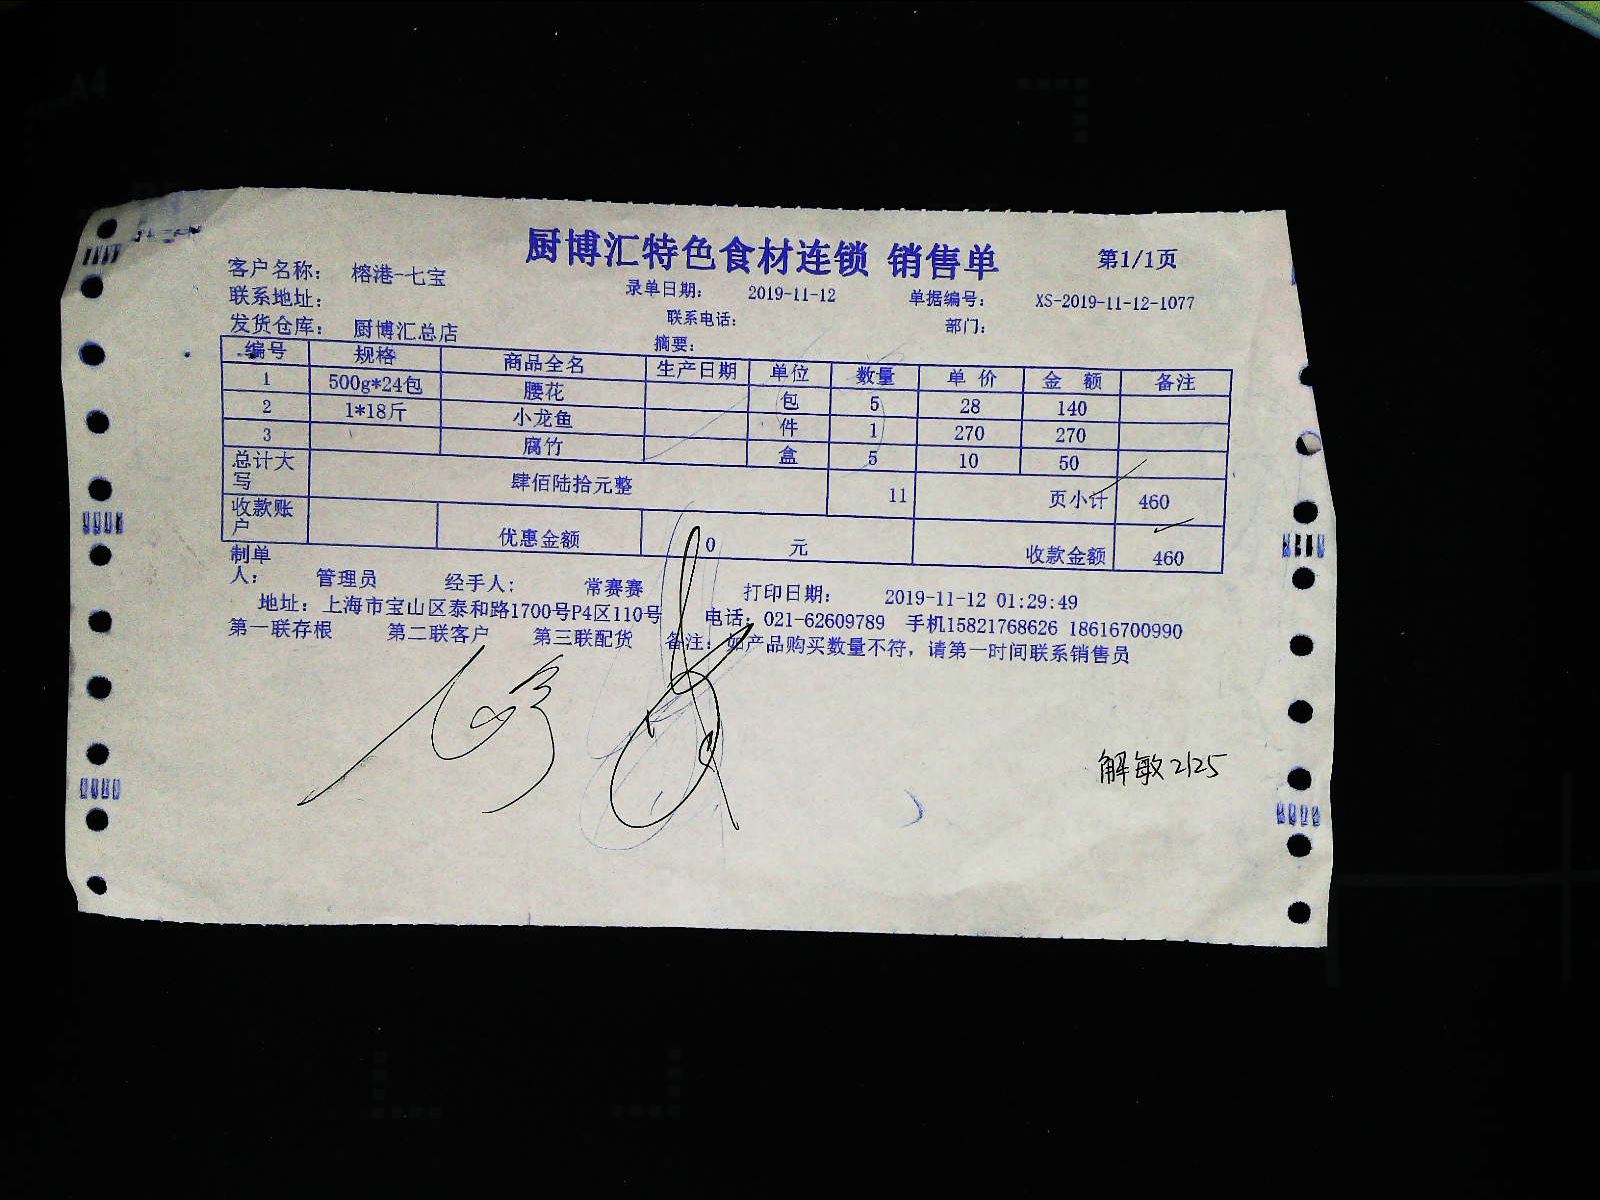 厨博汇特色食材连锁 销售单 第1/1页
客户名称： 榕港-七宝
录单日期： 2019-11-12 单据编号： XS-2019-11-12-1077
联系地址： 联系电话： 部门：
发货仓库： 厨博汇总店 摘要：
编号 规格 商品全名 生产日期 单位 数量 单 价 金 额 备注
1 500g*24包 腰花 包 5 28 140
2 1*18斤 小龙鱼 件 1 270 270
3 腐竹 盒 5 10 50
总计大写 肆佰陆拾元整 11 页小计 460
收款账户 优惠金额 0 元 收款金额 460
制单人： 管理员 经手人： 常赛赛 打印日期： 2019-11-12 01:29:49
地址：上海市宝山区泰和路1700号P4区110号 电话：021-62609789 手机15821768626 18616700990
第一联存根 第二联客户 第三联配货 备注：如产品购买数量不符，请第一时间联系销售员
解敏2125